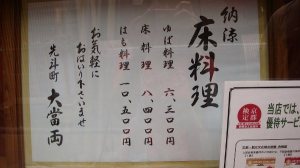 納涼
床料理
ゆば料理 六、三〇〇円
床料理 八、四〇〇円
はも料理 一〇、五〇〇円
お気軽に
おはいり下さいませ
先斗町 大當両
京都
検定
当店では、
優待サービ